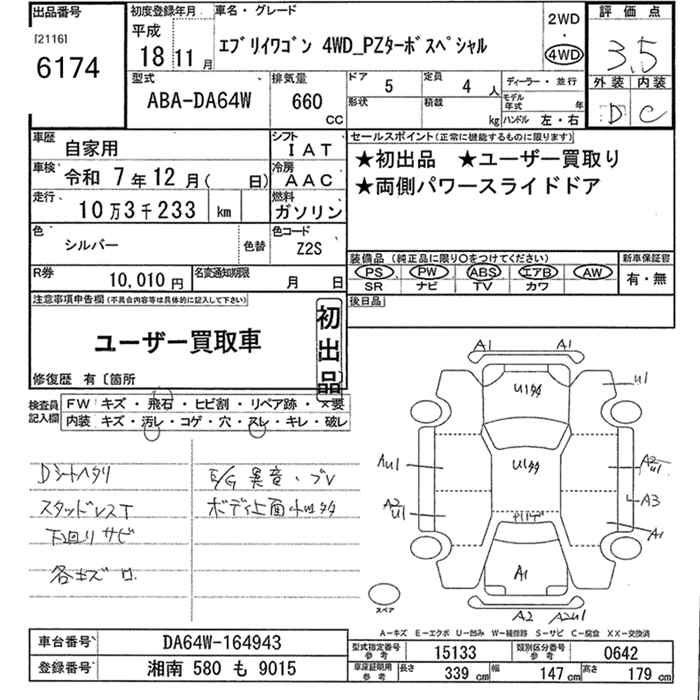 出品番号
[2116]
6174
初度登録年月
平成
18 11 月
車名・グレード
エブリイワゴン 4WD_PZターボスペシャル
2WD
・
4WD
評価点
3.5
外装 内装
D C
型式
ABA-DA64W
排気量
660
CC
ドア
5
定員
4 人
形状
積載
kg
ディーラー・並行
モデル年式 年
ハンドル 左・右
車歴
自家用
車検
令和 7 年 12 月 ( 日)
走行
10 万 3 千 233 km
色
シルバー
色替
シフト
IAT
冷房
AAC
燃料
ガソリン
色コード
Z2S
R券
10,010 円
名変通知期限
月 日
セールスポイント(正常に機能するものに限ります)
★初出品 ★ユーザー買取り
★両側パワースライドドア
装備品 (純正品に限り○をつけてください)
PS PW ABS エアB AW
SR ナビ TV カワ
新車保証書
有・無
後日品
注意事項申告欄(不具合内容等は具体的に記入して下さい)
ユーザー買取車
初出品
修復歴 有〔箇所
検査員記入欄
FW キズ・飛石・ヒビ割・リペア跡・×要
内装 キズ・汚レ・コゲ・穴・スレ・キレ・破レ
Dシートヘタリ
スタッドレスT
下回リサビ
E/G 異音・ブレ
ボディ上面小凹多
A1 A1
U1多
U1
AU1
U1多
A2
U1
A2
U1
A3
A1
A1
A2 A2U1
スペア
A-キズ E-エクボ U-凹み W-補修跡 S-サビ C-腐食 XX-交換済
車台番号
DA64W-164943
登録番号
湘南 580 も 9015
型式指定番号
参考
15133
類別区分番号
参考
0642
車庫証明用
参考
長さ
339 cm
幅
147 cm
高さ
179 cm